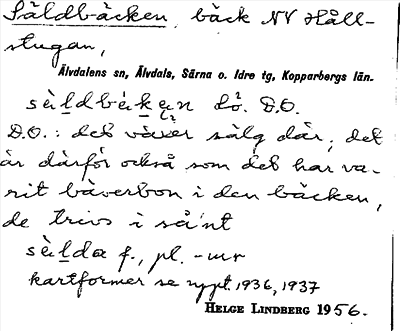 Säldbäcken, bäck NV Håll-
stugan,
Älvdalens sn, Älvdals, Särna o. Idre tg, Kopparbergs län.
sèḷdbèken dö. D.O.
D.O.: det växer sälg där, det
är därför också som det har va-
rit bäverbon i den bäcken,
de trivs i sånt
sèḷda f., pl. -ur
kartformer se uppt. 1936, 1937
HELGE LINDBERG 1956.